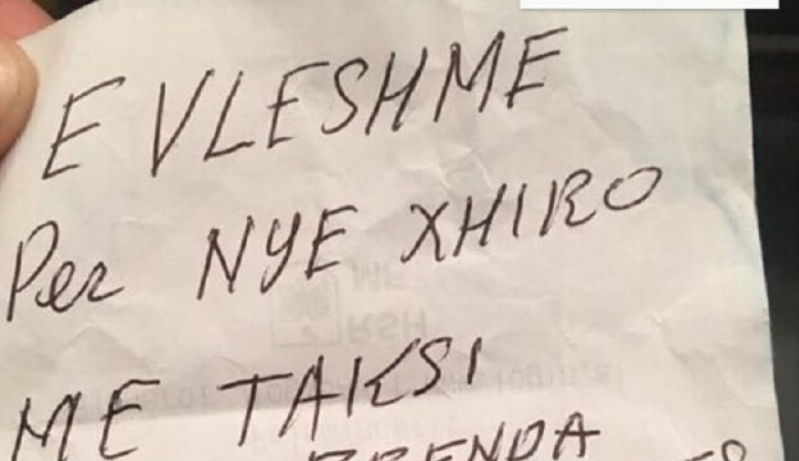 E VLESHME
Per NYE XHIRO
ME TAKSI
BRENDA